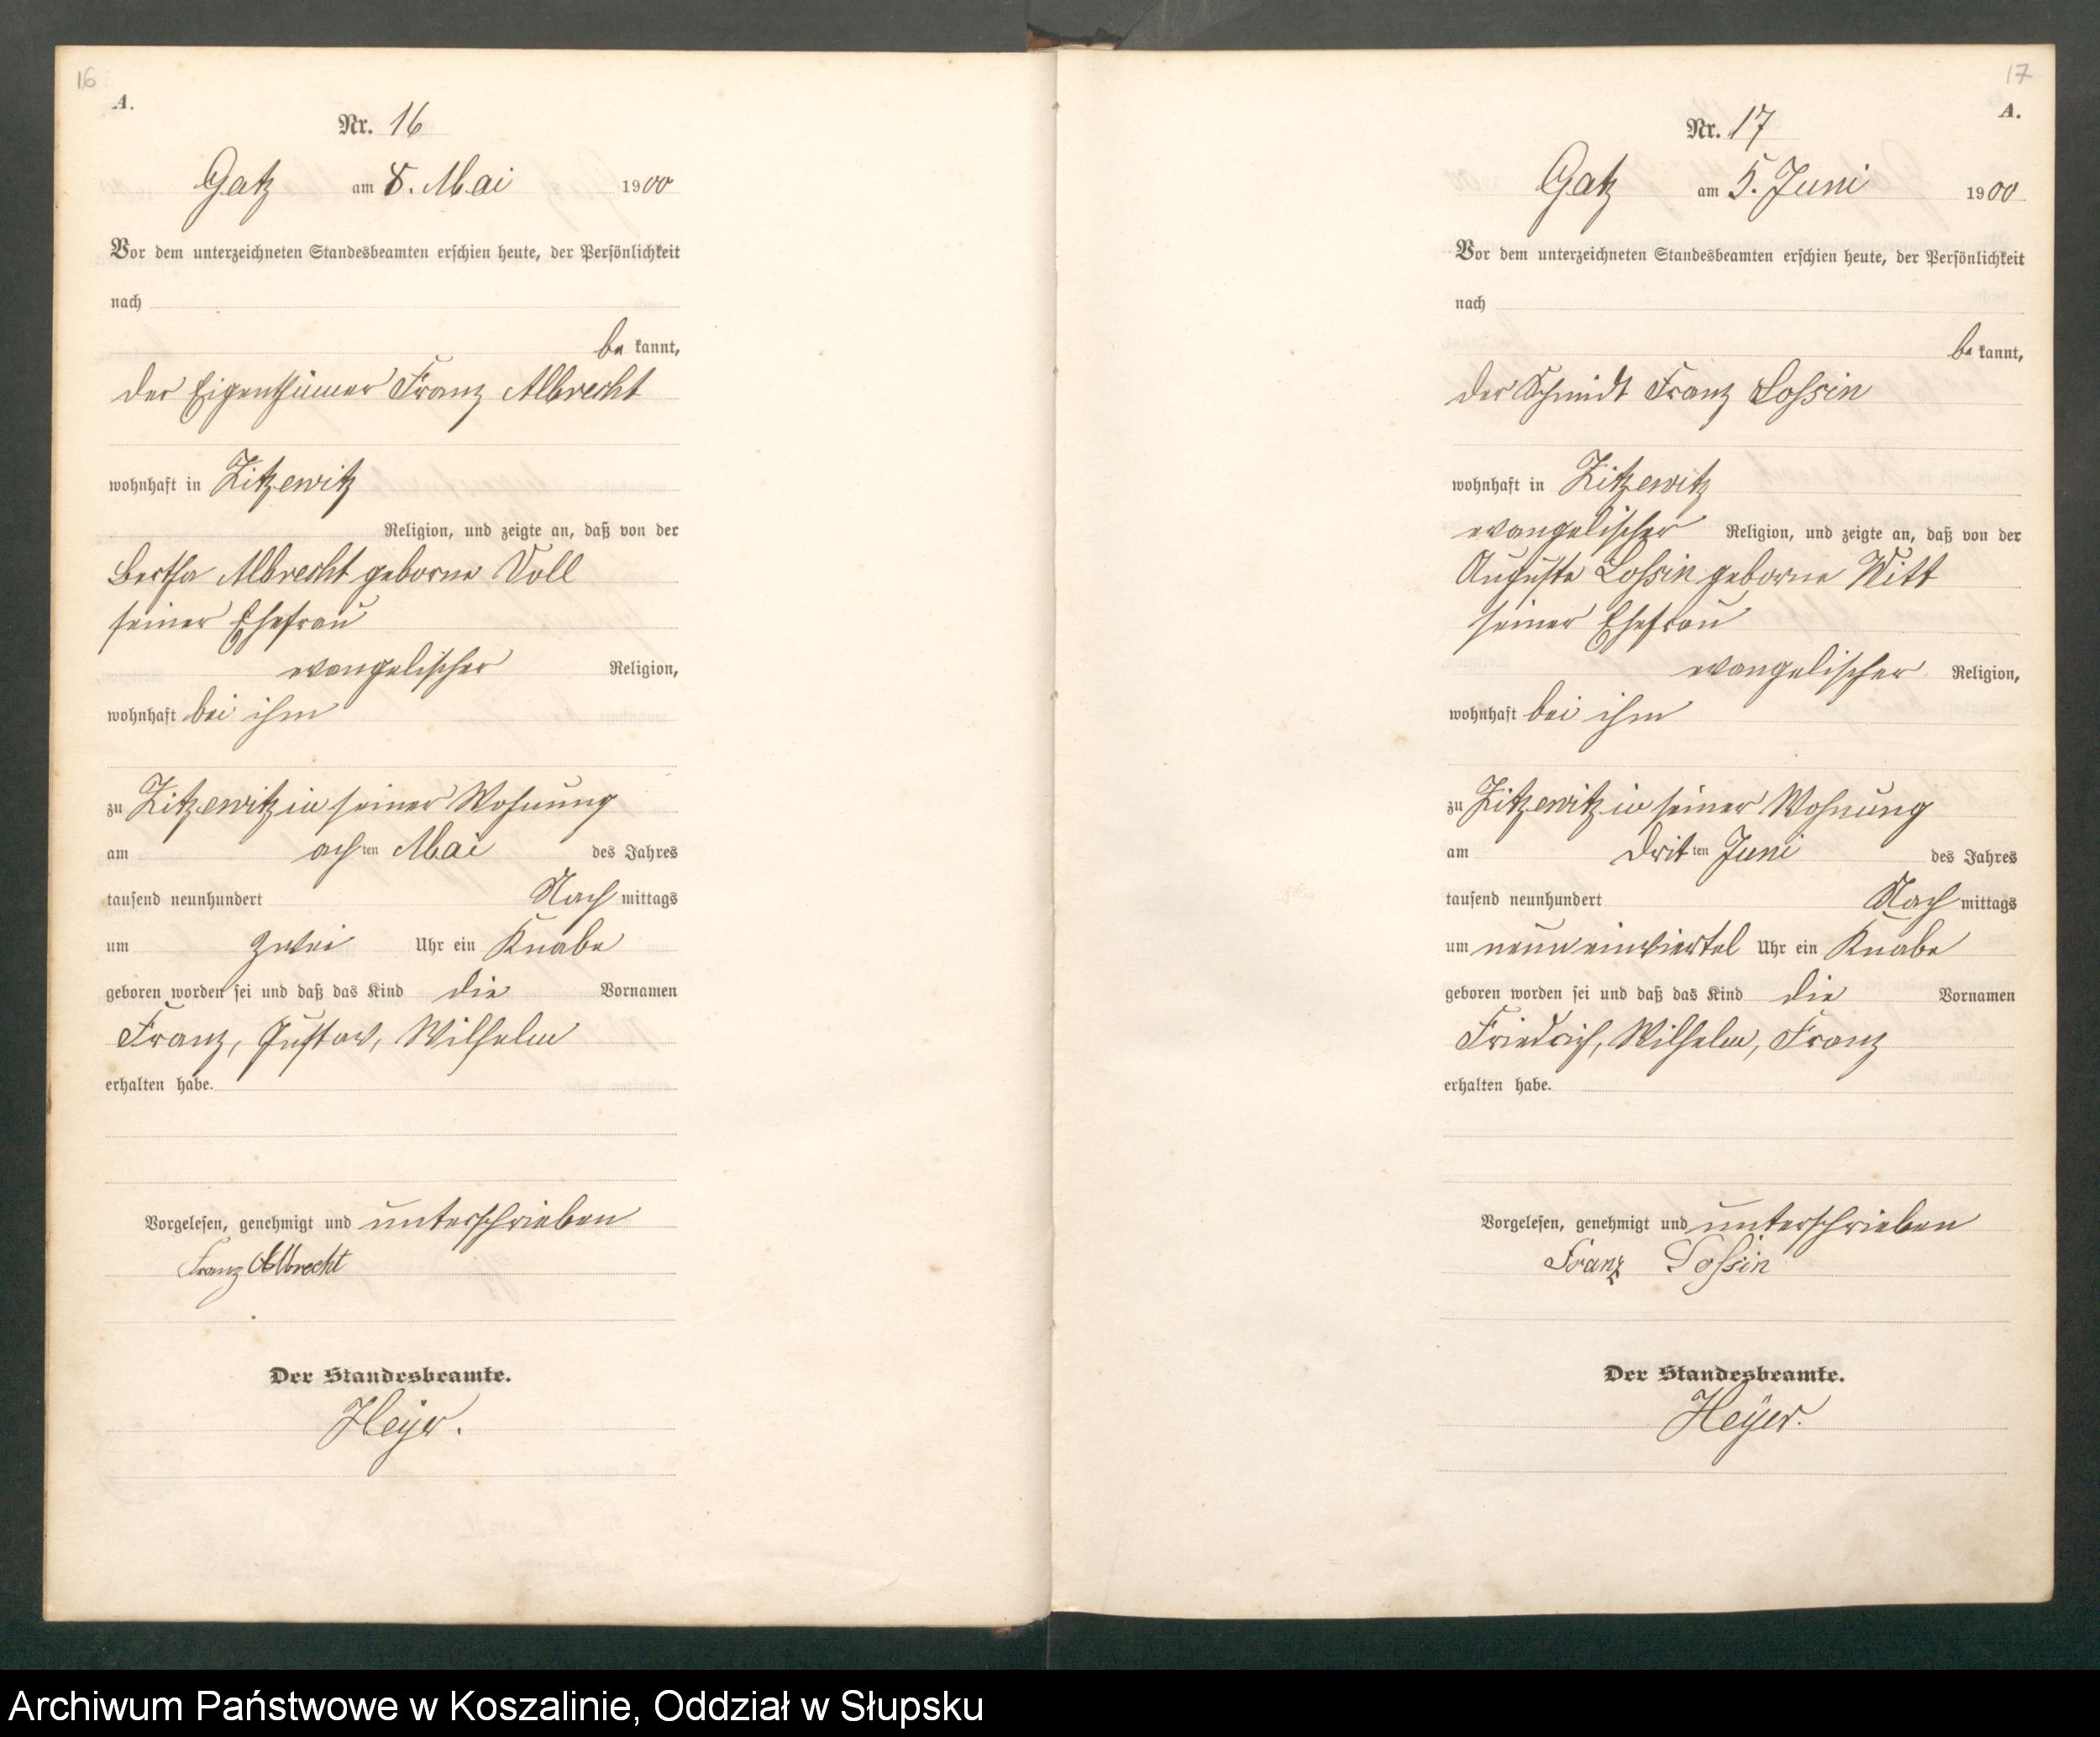 16
A.
Nr. 16
Gatz am 8. Mai 1900
Vor dem unterzeichneten Standesbeamten erschien heute, der Persönlichkeit
nach
be kannt,
der Eigenthümer Franz Albrecht
wohnhaft in Zitzewitz
Religion, und zeigte an, daß von der
Bertha Albrecht geborne Voll
seiner Ehefrau
evangelischer Religion,
wohnhaft bei ihm
zu Zitzewitz in seiner Wohnung
am achten Mai des Jahres
tausend neunhundert Nachmittags
um zwei Uhr ein Knabe
geboren worden sei und daß das Kind die Vornamen
Franz, Gustav, Wilhelm
erhalten habe.
Vorgelesen, genehmigt und unterschrieben
Franz Albrecht
Der Standesbeamte.
Heyer.
17
A.
Nr. 17
Gatz am 5. Juni 1900
Vor dem unterzeichneten Standesbeamten erschien heute, der Persönlichkeit
nach
be kannt,
der Schmidt Franz Lossin
wohnhaft in Zitzewitz
evangelischer Religion, und zeigte an, daß von der
Auguste Lossin geborne Witt
seiner Ehefrau
evangelischer Religion,
wohnhaft bei ihm
zu Zitzewitz in seiner Wohnung
am dritten Juni des Jahres
tausend neunhundert Nachmittags
um neun einviertel Uhr ein Knabe
geboren worden sei und daß das Kind die Vornamen
Friedrich, Wilhelm, Franz
erhalten habe.
Vorgelesen, genehmigt und unterschrieben
Franz Lossin
Der Standesbeamte.
Heyer.
Archiwum Państwowe w Koszalinie, Oddział w Słupsku